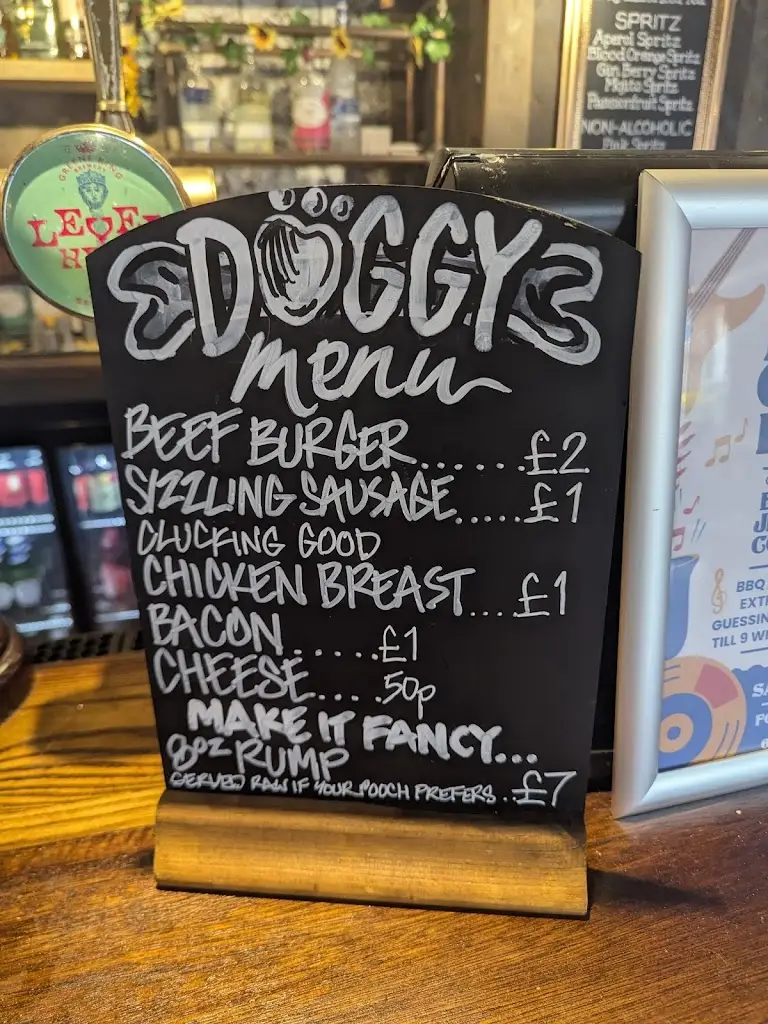 SPRITZ
Aperol Spritz
Blood Orange Spritz
Gin Berry Spritz
Mojito Spritz
Passionfruit Spritz
NON-ALCOHOLIC
Pink Spritz
GREENE KING
LEVEL
DOGGY
menu
BEEF BURGER......£2
SIZZLING SAUSAGE.....£1
CLUCKING GOOD
CHICKEN BREAST...£1
BACON.....£1
CHEESE....50p
MAKE IT FANCY...
8oz RUMP
SERVED RAW IF YOUR POOCH PREFERS..£7
BBQ
GUESSIN
TILL 9